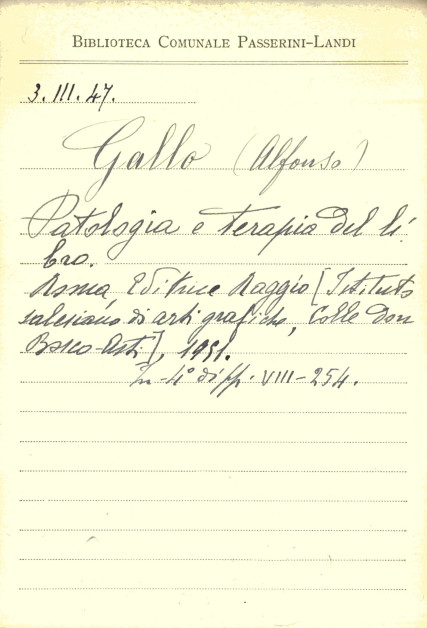 BIBLIOTECA COMUNALE PASSERINI-LANDI
3. III. 47.
Gallo (Alfonso)
Patologia e terapia del li-
bro.
Roma, Editrice Raggio [Istituto
salesiano di arti grafiche, Colle Don
Bosco-Asti], 1951.
In-4° di pp. VIII-254.